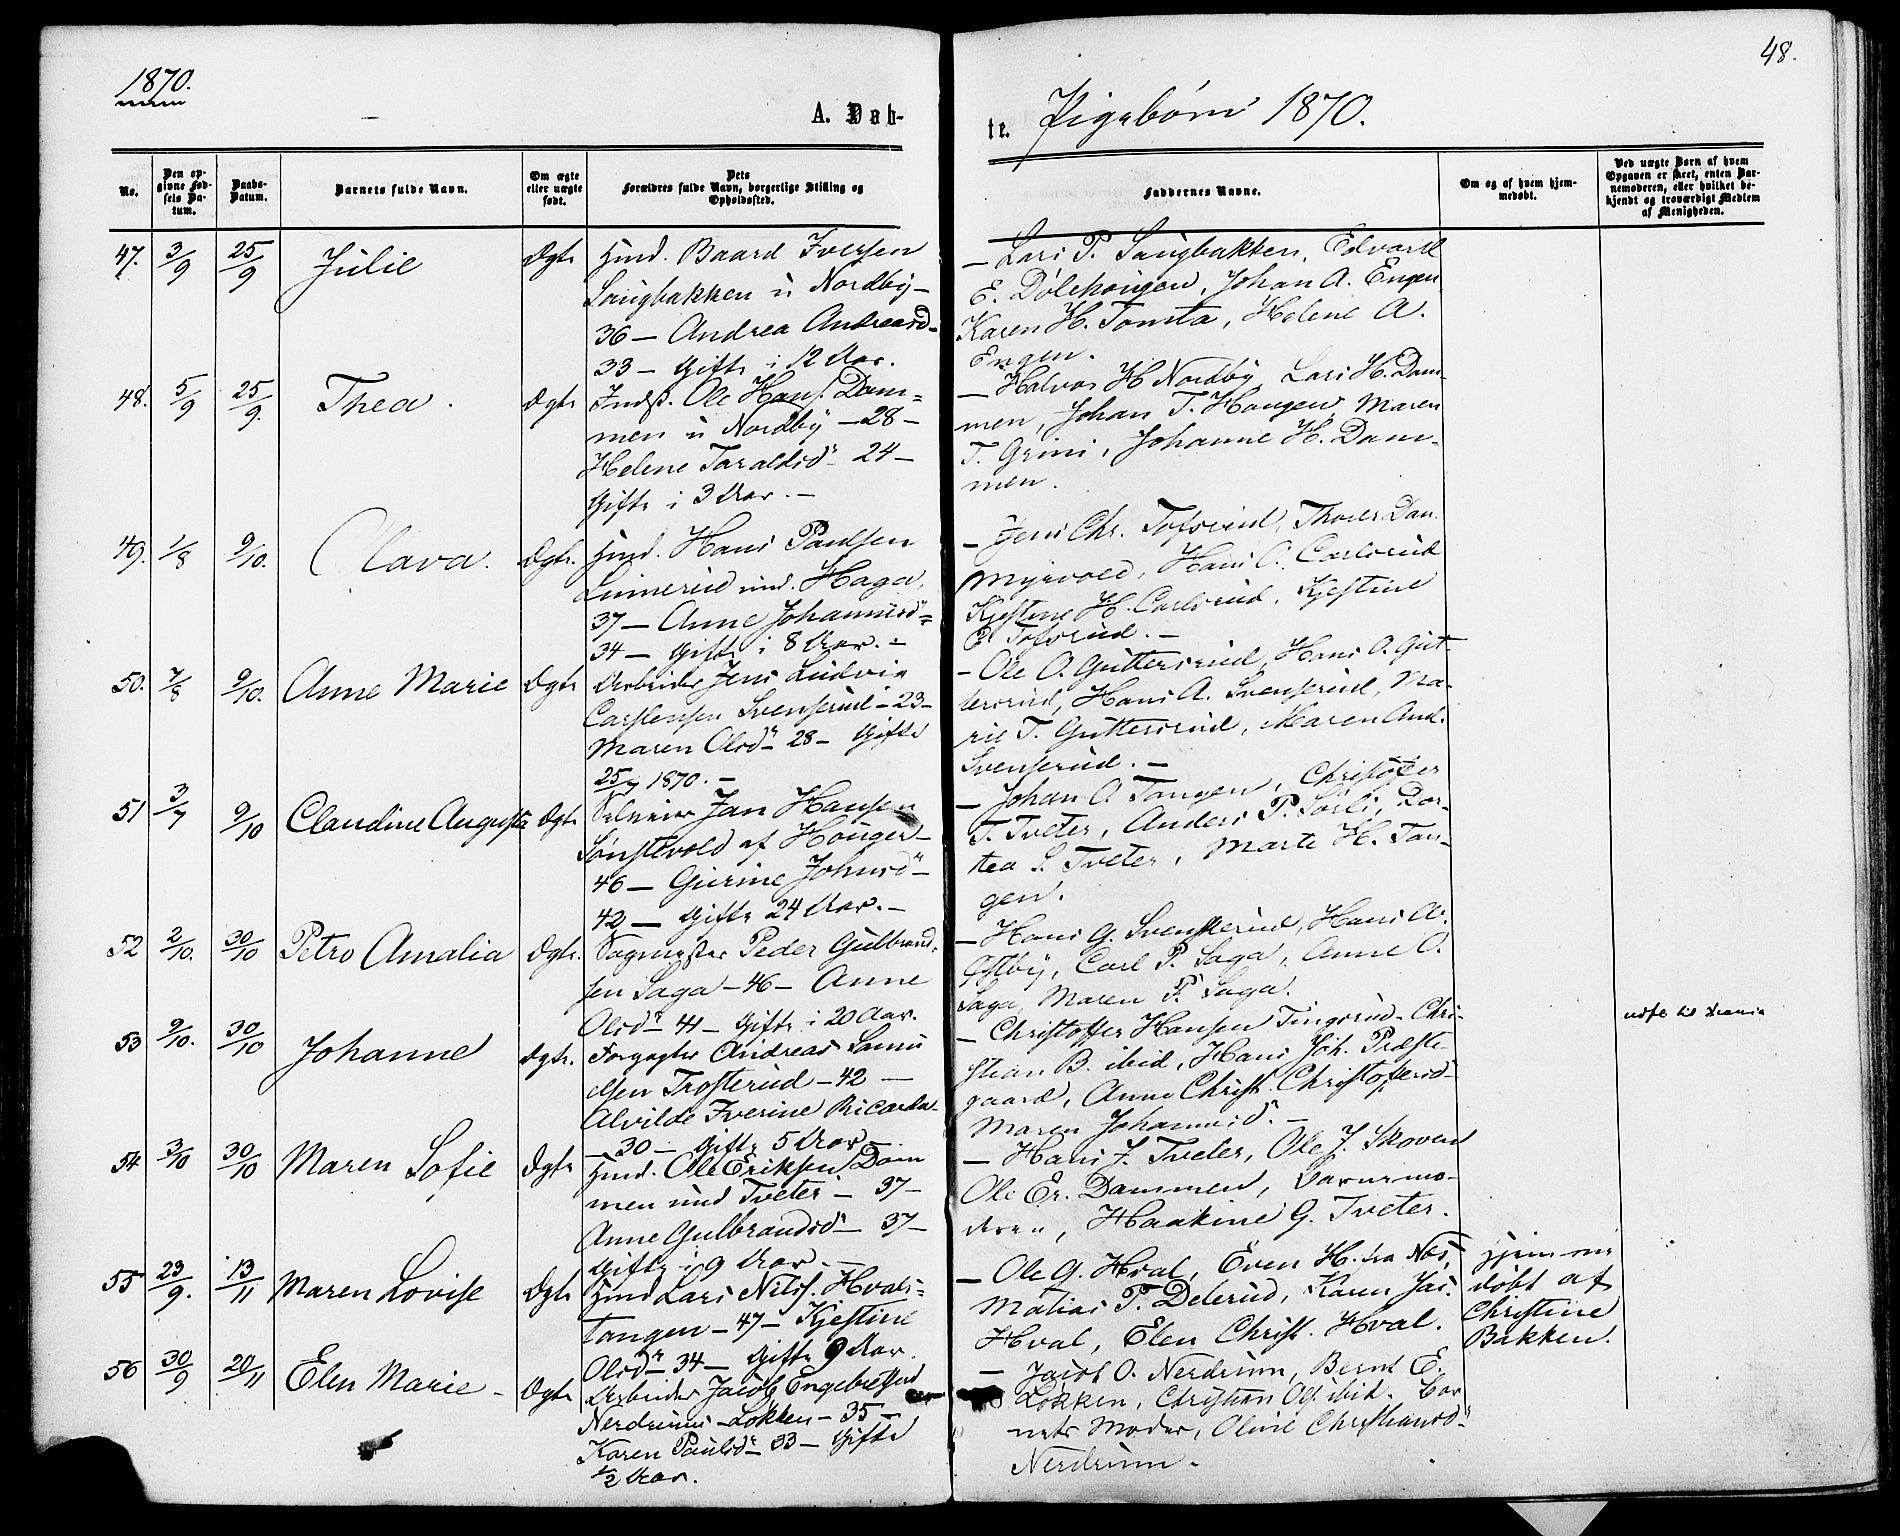 1870.
48.
A. Døb-
te. Pigebörn 1870.
No.
Den op-
givne Fød-
sels Da-
tum.
Daabs-
Datum.
Barnets fulde Navn.
Om ægte
eller uægte
født.
Dets
Forældres fulde Navn, borgerlige Stilling og
Opholdssted.
Faddernes Navne.
Om og af hvem hjem-
medøbt.
Ved uægte Børn af hvem
Opgaven er skeet, enten Bar-
nemoderen, eller hvilket be-
kjendt og troværdigt Medlem
af Menigheden.
47. 3/9 25/9 Julie Ægte Hmd. Baard Iversen
Saugbakken u Nordby -
36 - Andrea Andreasd -
33 - Gifte i 12 Aar.
- Lars P. Saugbakken, Edvard
E. Dölehougen, Johan A. Engen
Karen H. Tomta, Helene A.
Engen.
48. 5/9 25/9. Thea. Ægte Indss. Ole Hans. Dam-
men u Nordby - 28 -
Helene Taraldsd - 24 -
Gifte i 3 Aar. -
- Halvor H Nordby, Lars H. Dam-
men, Johan T. Haugen, Maren
T. Grini, Johanne H. Dam-
men.
49. 1/8 9/10. Clara. Ægte. Hmd. Hans Paulsen
Linnerud und. Haga,
37 - Anne Johannesd -
34 - Gifte i 8 Aar. -
- Jens Chr. Tofsrud, Thorer Dan.
Myrvold, Hans O. Carlsrud
Kjestine H. Carlsrud, Kjestine
Tofsrud. -
50. 7/8 9/10. Anne Marie Ægte Arbeider Jens Ludvig
Carstensen Svenserud - 23 -
Maren Olsd - 28 - Gifte
25/7 1870. -
- Ole O. Guttersrud, Hans O. Gut-
tersrud, Hans A. Svenserud, Ma-
rie T. Guttersrud, Maren And.
Svenserud. -
51 3/7 9/10 Claudine Augusta Ægte Selveier Jan Hansen
Sønstevold af Houger -
46 - Gurine Johnsd -
42 - Gifte 24 Aar. -
- Johan A. Tangen, Christofer
T. Tveter, Anders P. Sörli, Dor-
tea S. Tveter, Marte H. Tan-
gen.
52 2/10. 30/10 Petro Amalia Ægte. Sagmester Peder Gulbrand-
sen Saga - 46 - Anne
Olsd - 41 - Gifte i 20 Aar.
- Hans G. Svenskerud, Hans A.
Østby, Carl P. Saga, Anne O.
Saga, Maren P. Saga.
53 9/10. 30/10 Johanne Ægte. Forpagter Andreas Samu
elsen Trosterud - 42 -
Alvilde Iverine Ricarda -
- 30 - Gifte 5 Aar
- Christoffer Hansen Tingsrud - Chri-
stian B. ibid, Hans Joh. Præste-
gaard, Anne Christ. Christofersd -
Maren Johannesd. -
54 3/10 30/10 Maren Sofie Ægte Hmd. Ole Eriksen Dam
men und Tveter - 37 -
Anne Gulbrandsd - 37 -
Gifte i 9 Aar. -
- Hans J. Tveter, Ole J. Skoven
Ole Er. Dammen, Barnemo-
deren, Haakine G. Tveter.
55 23/9. 13/11 Maren Lovise Ægte Hmd Lars Nils. Hvals-
tangen - 47 - Kjestine
Olsd - 34 - Gifte 9 Aar.
- Ole G. Hval, Even H. fra Næs,
Matias T. Delerud, Karen Jac.
Hval, Elen Christ. Hval.
Hjemme
döbt af
Christine
Bakken.
56 30/9 20/11 Elen Marie - Ægte Arbeider Jacob Engebretsen
Nerdrums - Løkken - 35 -
Karen Paulsd - 33 - Gifte
1/2 Aar.
- Jacob O. Nerdrum, Bernt E.
Løkken, Christian Ols. ibid. Bar
nets Moder, Oline Christiansd -
Nerdrum.